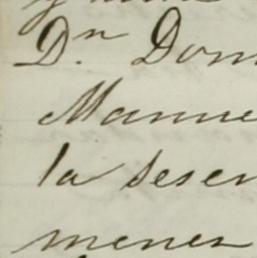 Dⁿ. Dom
Manue
la deser
menen